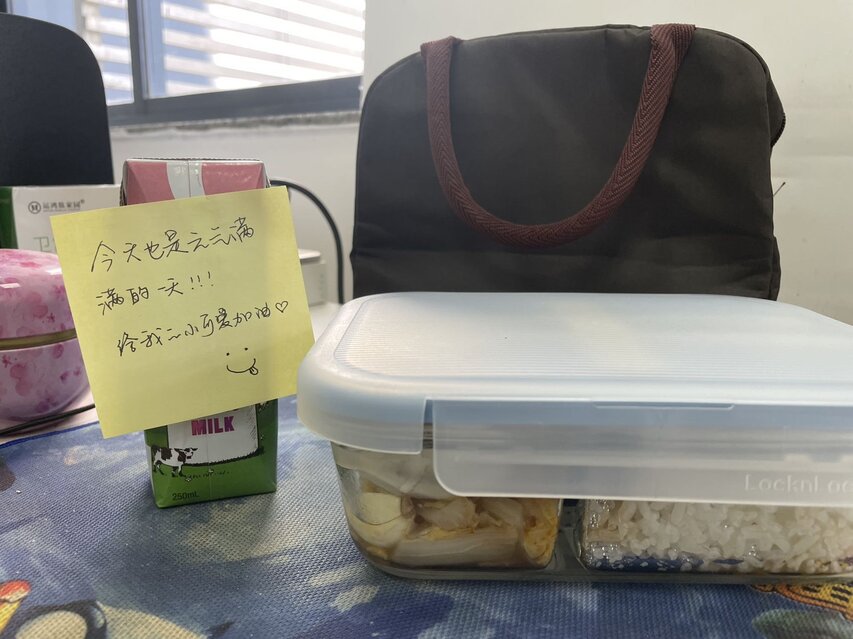 今天也是元气满
满的一天!!!
给我 小可爱加油♡
卫
MILK
250mL
LocknLoc